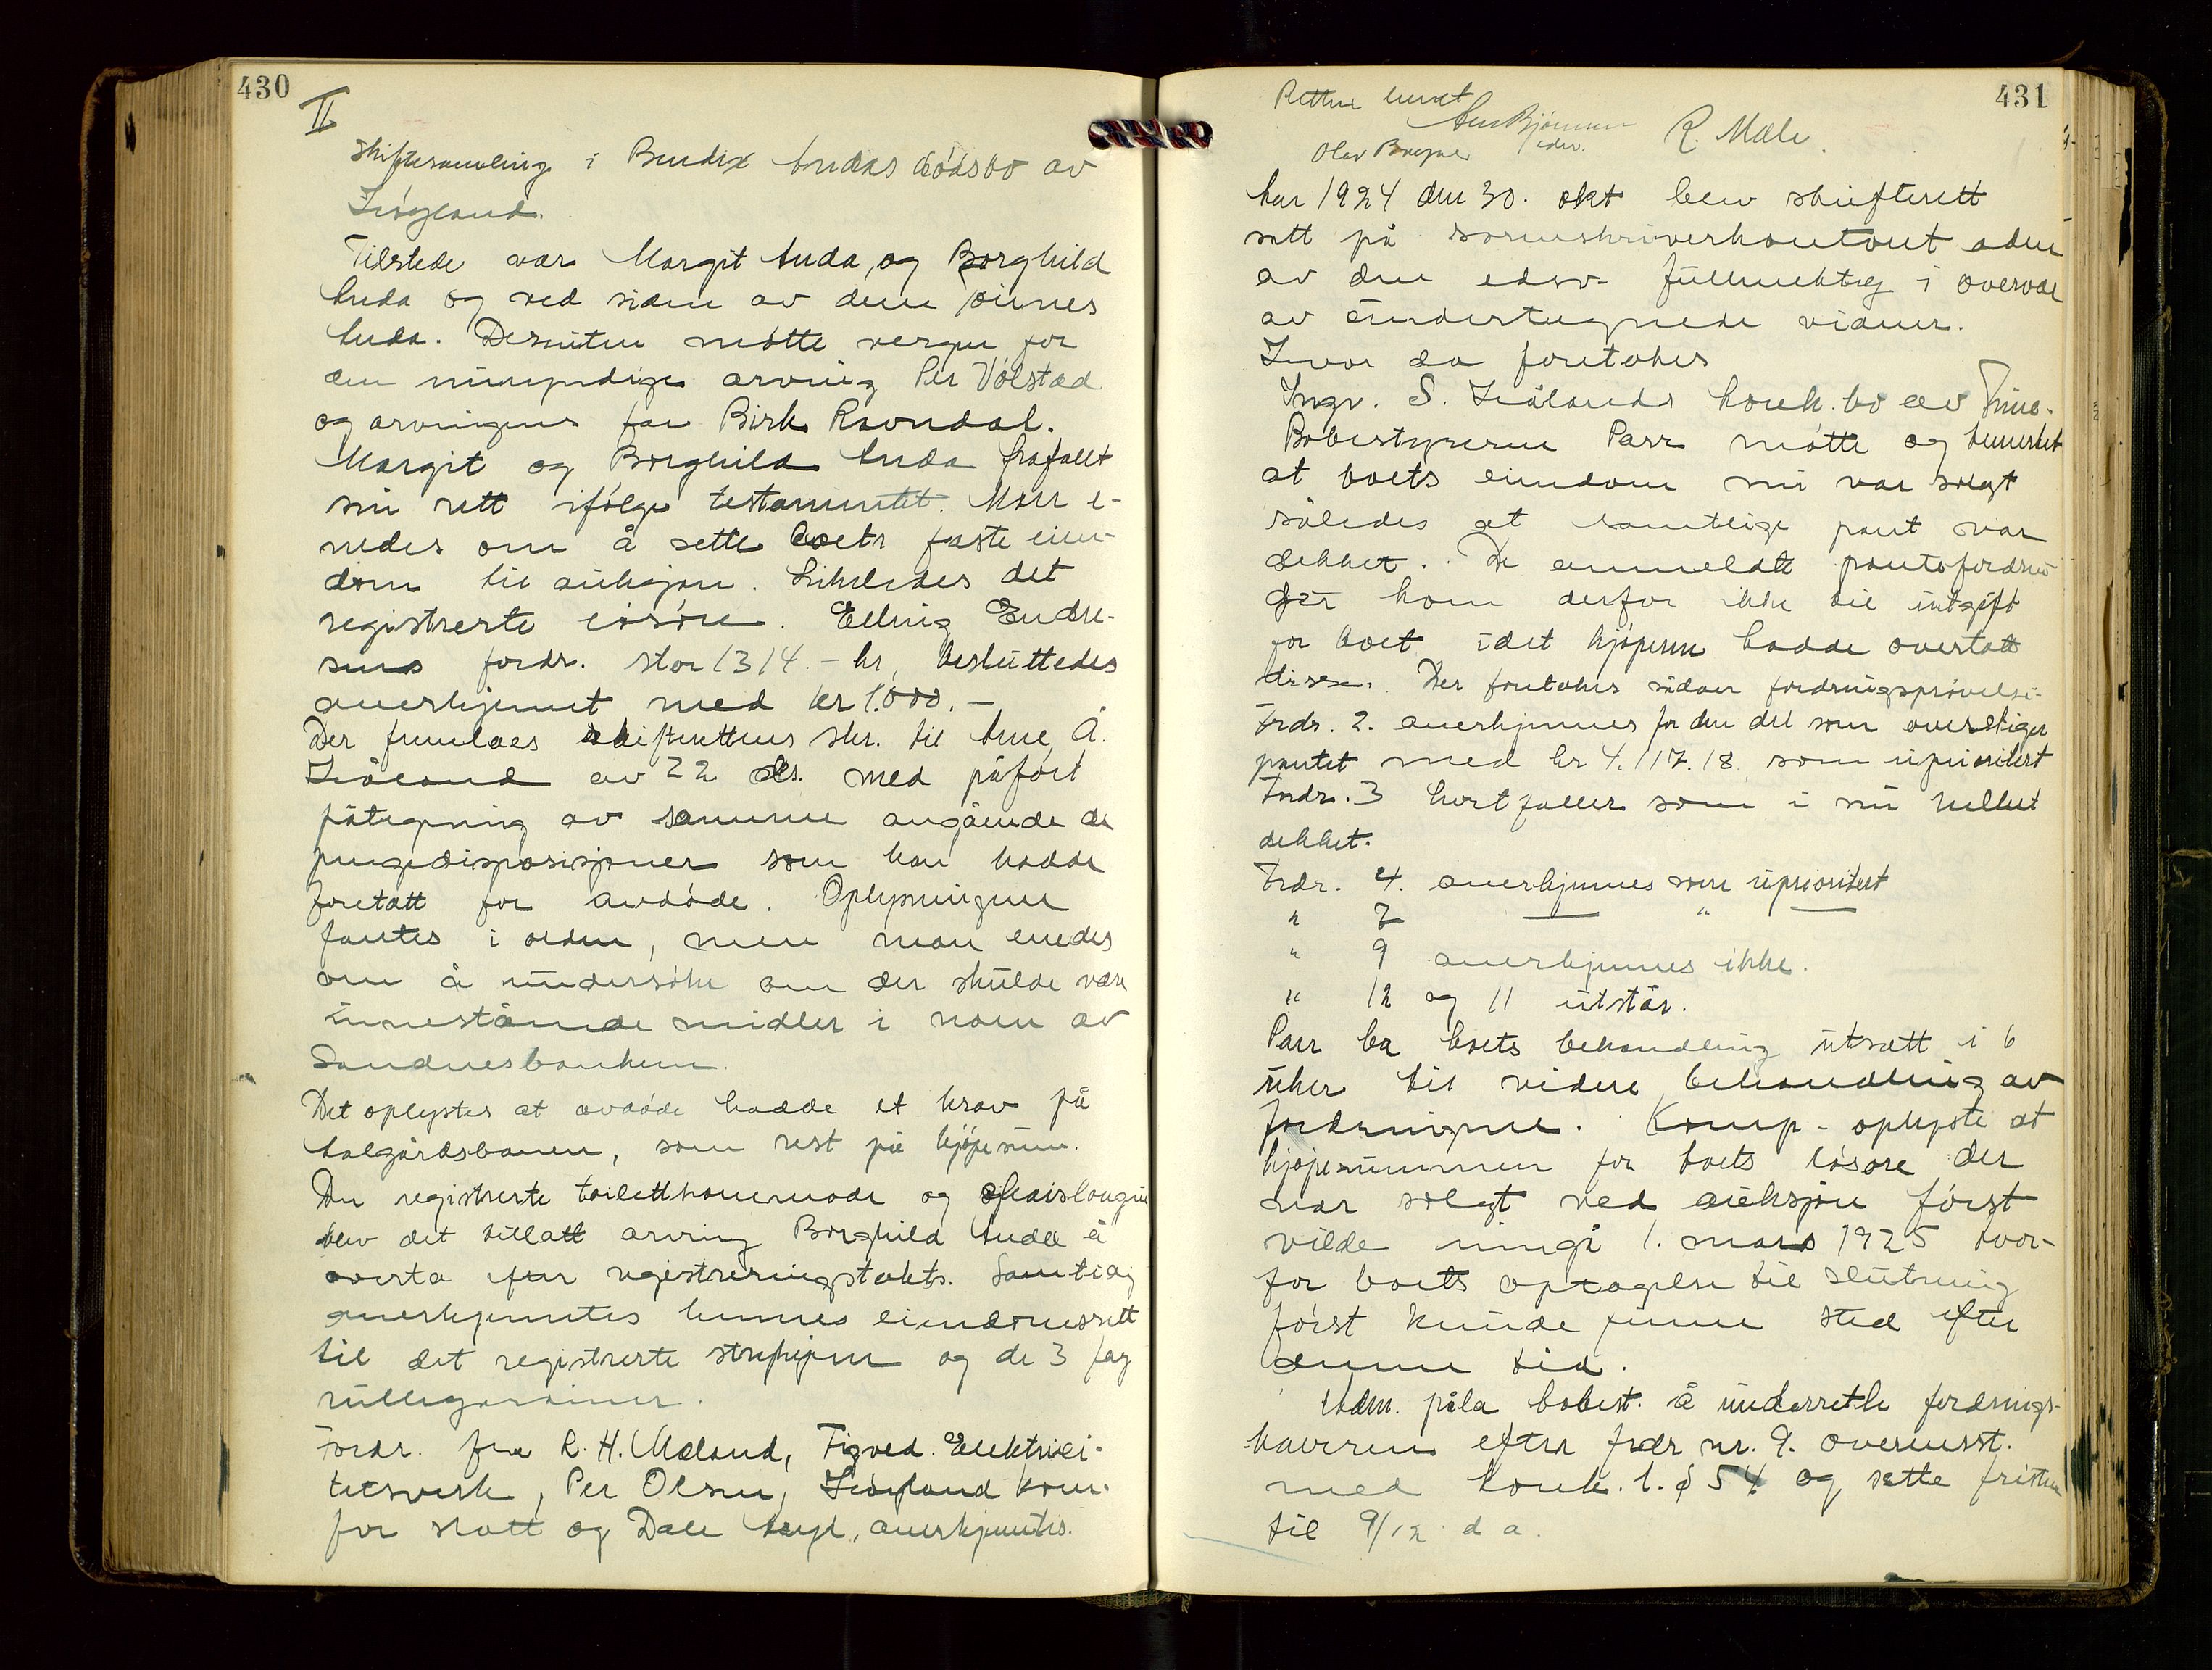 430
II
Skiftesamling i Bendix Andas dødsbo av
Høyland.
Tilstede var Margit Anda, og Borghild
Anda og ved siden av dem Joinnes
Anda. Desuten møtte vergen for
den umyndige arving Per Vølstad
og arvingens far Birk Ravndal.
Margit og Borghild Anda frafallt
sin rett ifølge testamentet. Man e-
nedes om å sette boets faste eien-
dom til auksjon. Likeledes det
registrerte løsøre. Elling Endre-
sens fordr. stor 1314.- kr, besluttedes
anerkjennt med kr 1.000.-
Der fremlaes skifterettens skr. til Arne Å.
Høiland av 22 ds. med påført
påtegning av samme angående de
pengedisposisjoner som han hadde
foretatt for avdøde. Oplysningene
fantes i orden, men man enedes
om å undersøke om der skulde være
innestående midler i noen av
Sandnesbankene.
Det oplystes at avdøde hadde et krav på
Ålgårdsbanen, som rest på kjøpesum.
Den registrerte toilettkommode og chaiselongue
blev det tillatt arving Borghild Anda å
overta efter registreringstakst. Samtidig
anerkjenntes hennes eiendomsrett
til det registrerte strykejern og de 3 fag
rullegardiner.
Fordr. fra R. H. Mæland, Figved. Elektrici-
tetsverk, Per Olsen, Høyland kom.
for skatt og Dale Asyl, anerkjenntes.
431
Retten hevet
R. Mæle.
Olav Bryne
Aar 1924 den 30. okt blev skifterett
satt på sorenskriverkontoret adm
av den edsv. fullmektig i overvær
av undertegnede vidner.
Hvor da foretokes
Ingv. S. Hålands konk.bo av Time.
Bobestyreren Parr møtte og bemerket
at boets eiendom nu var solgt
således at samtlige pant var
dekket. De anmeldte pantefordrin-
ger kom derfor ikke til utgift
for boet idet kjøperen hadde overtatt
disse. Der foretokes sådan fordringsprøvelse:
Fordr. 2. anerkjennes for den del som overstiger
pantet med kr 4.117.18 som uprioritert
Fordr. 3 bortfaller som i nu helhet
dekket.
Fordr. 4. anerkjennes som uprioritert
" 7 — " —
" 9 anerkjennes ikke.
" 12 og 11 utstår.
Parr ba boets behandling utsatt i 6
uker til videre behandling av
fordringene. Komp. oplyste at
kjøpesummen for boets løsøre der
var solgt ved auksjon først
vilde inngå 1. mars 1925 hvor-
for boets optagelse til slutning
først kunde finne sted efter
denne tid.
Adm. påla bobest. å underrette fordrings-
haveren efter fordr nr. 9. overensst.
med konk.l. § 54 og sette fristen
til 9/12 d a.